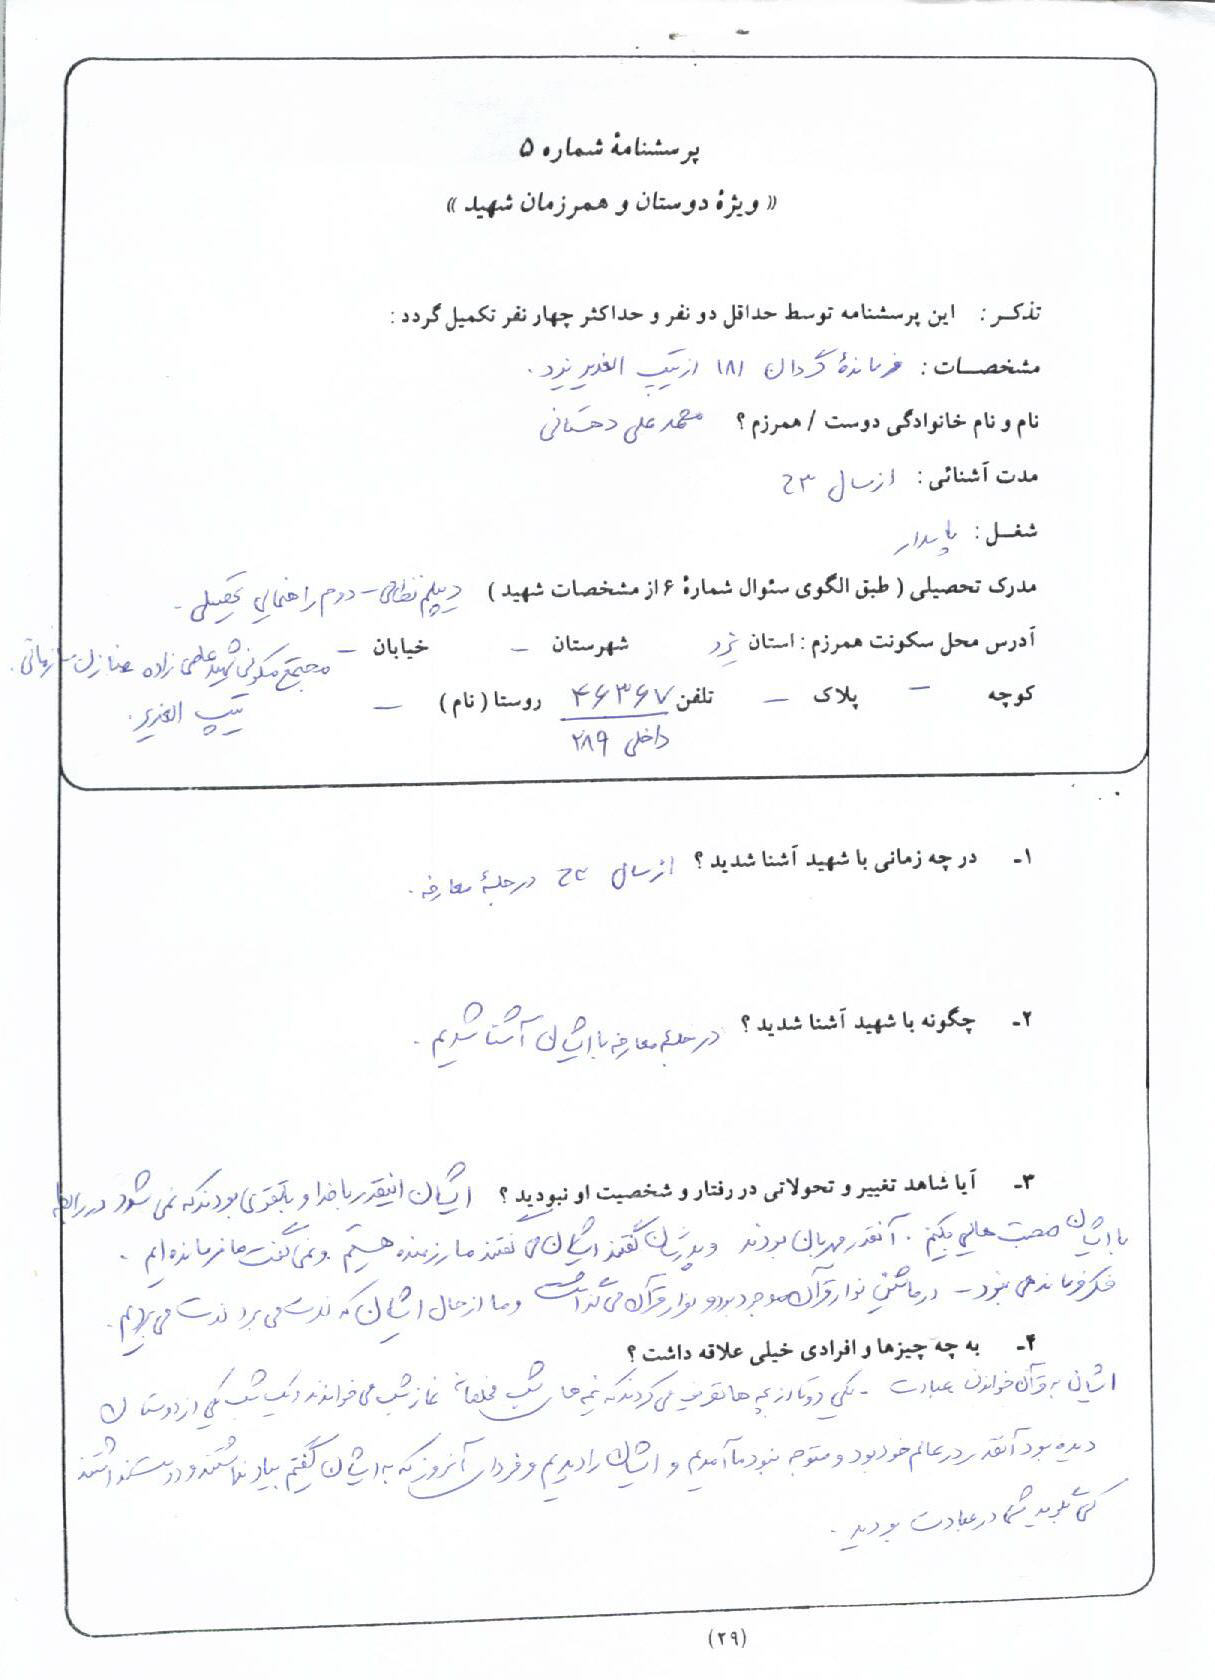 پرسشنامهٔ شماره ۵
« ویژهٔ دوستان و همرزمان شهید »
تذکـر : این پرسشنامه توسط حداقل دو نفر و حداکثر چهار نفر تکمیل گردد :
مشخصـات : فرماندهٔ گردان ۱۸۱ از تیپ الغدیر یزد .
نام و نام خانوادگی دوست / همرزم ؟ محمد علی دهستانی
مدت آشنائی : از سال
شغـل : پاسدار
مدرک تحصیلی ( طبق الگوی سئوال شمارهٔ ۶ از مشخصات شهید ) دیپلم نظامی – دوم راهنمایی تحصیلی -
آدرس محل سکونت همرزم : استان یزد شهرستان – خیابان – مجتمع مسکونی شهید زاده منازل سازمانی .
کوچه – پلاک – تلفن ۴۶۳۶۷ روستا ( نام ) – تیپ الغدیر .
داخلی ۲۸۹
۱ـ در چه زمانی با شهید آشنا شدید ؟ از سال در جلسهٔ معارفه .
۲ـ چگونه با شهید آشنا شدید ؟ در جلسهٔ معارفه با ایشان آشنا شدیم .
۳ـ آیا شاهد تغییر و تحولاتی در رفتار و شخصیت او نبودید ؟ ایشان اینقدر با خدا و با تقوی بودند که نمی شود در رابطه
با ایشان صحبت هایی بکنیم . آنقدر مهربان بودند و گفتند ایشان می گفتند ما رزمنده هستیم و نمی گفت ما فرمانده ایم .
فکر فرماندهی نبود – در ماشین نوار قرآن موجود بود و نوار قرآن می گذاشت و ما از حال ایشان که لذت می برد لذت می بردیم .
۴ـ به چه چیزها و افرادی خیلی علاقه داشت ؟
ایشان به قرآن خواندن عبادت - یکی دو تا از بچه ها تعریف می کردند که نیمه های شب مخلصانه نماز شب می خواندند و یک شب یکی از دوستان
دیده بود آنقدر در عالم خود بود و متوجه نبود ما آمدیم و ایشان را دیدیم و فردای آنروز که به ایشان گفتیم بیاد نداشتند و دوست نداشتند
کسی بگوید شما در عبادت بودید .
(۲۹)